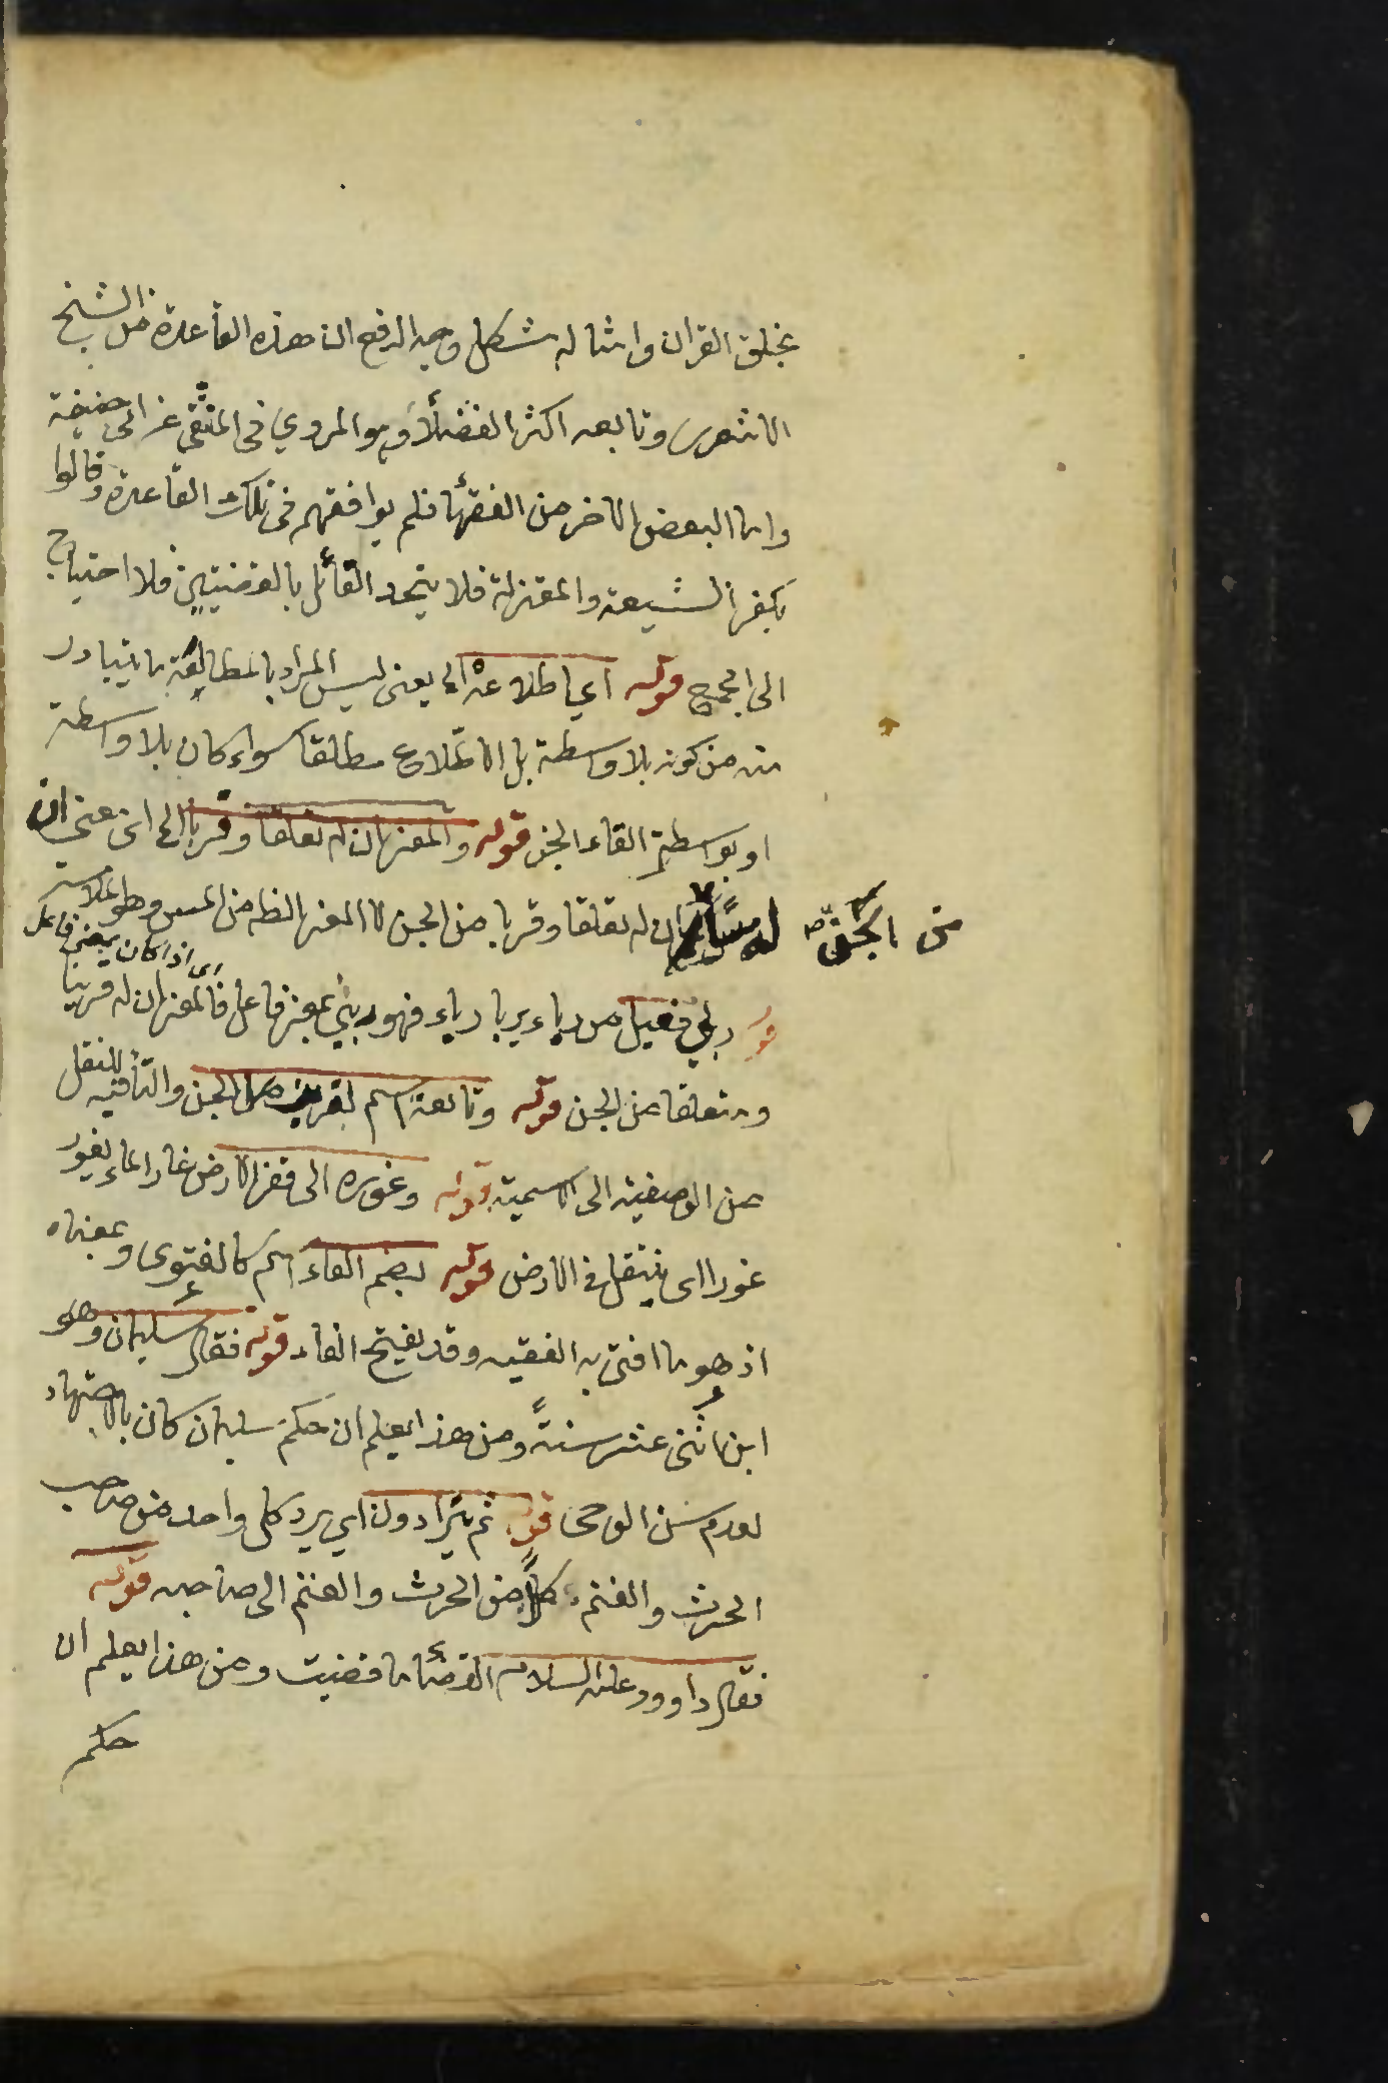 بخلق القران وامثاله مشكل وجه الدفع ان هذه القاعدة من الشيخ
الاشعرى وتابعه اكثر الفضلاء وهو المروي فى المنتقى عن ابى حنيفة
واما البعض الاخر من الفقهاء فلم يوافقهم فى تلك القاعدة وقالوا
بكفر الشيعة والمعتزلة فلا يتحد القائل بالقضيتين فلا احتياج
الى الجمع قوله اي اطلاعه الى يعنى ليس المراد بالمطالعة ما يتبادر
منه من كونه بلا واسطة بل الاطلاع مطلقا سواء كان بلا واسطة
او بوسطة القاء الجن قوله والمعنى ان له تعلقا وقربا الى اى معنى ان
له مسًّا من الجن ان له تعلقا وقربا من الجن لا المعنى الظاهر من المس وهو الملامسة
قوله رئي فعيل من رياء يربا رياء فهو رئي بمعنى فاعل فالمعنى ان له قريبا
اى اذا كان بمعنى فاعل
ومتعلقا من الجن قوله وتابعة اسم لفريق من الجن والتأنيه للنقل
من الوصفية الى الاسمية قوله وغوره الى قعر الارض غار الماء يغور
غورا اى ينتقل فى الارض قوله بضم الفاء اسم كالفتوى وبمعناه
اذ هو ما افتى به الفقيه وقد يفتح الفاء قوله فقال سليمان وهو
ابن اثنى عشر سنةً ومن هذا يعلم ان حكم سليمان كان بالاجتهاد
لعدم سن الوحى قوله ثم يترادون اي يرد كل واحد من صاحب
الحرث والغنم كلاًّ من الحرث والغنم الى صاحبه قوله
فقال داوود عليه السلام القضاء ما قضيت ومن هذا يعلم ان
حكم